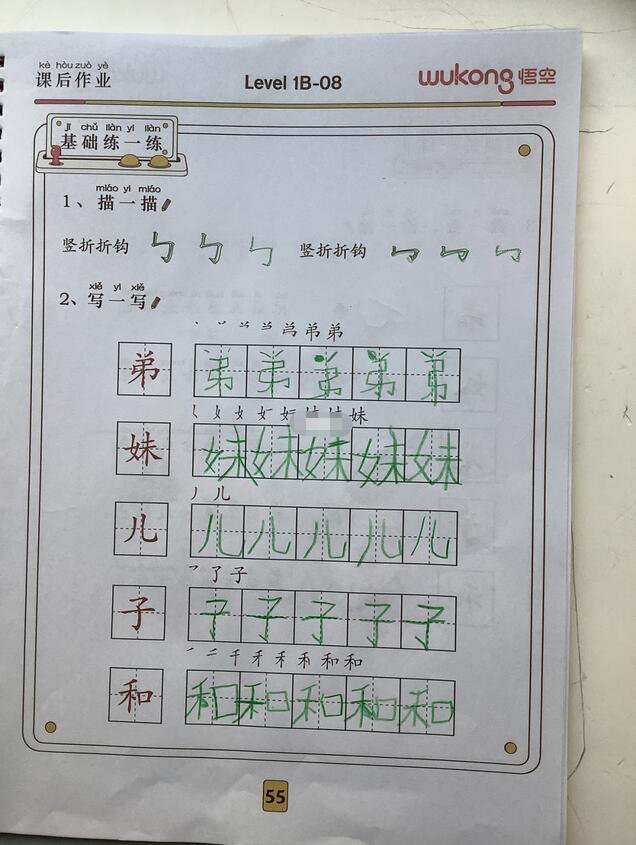 kè hòu zuò yè
课后作业 Level 1B-08 wukong 悟空
jī chǔ liàn yi liàn
基础练一练
miáo yi miáo
1、描一描
竖折折钩 ㄣ ㄣ ㄣ 竖折折钩 ㄣ ㄣ ㄣ
xiě yi xiě
2、写一写
弟 弟 弟 弟 弟 弟
妹
妹 妹 妹 妹 妹 妹
儿
儿 儿 儿 儿 儿 儿
了 子
子 子 子 子 子 子
千 和 和
和 和 和 和 和 和
55